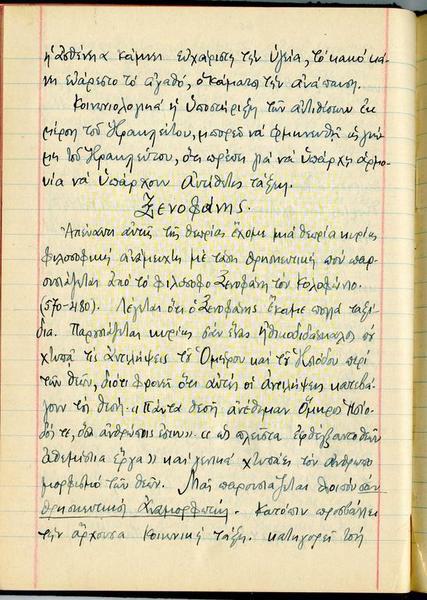 ἡ ἀσθένεια κάμνει εὐχάριστη τὴν ὑγεία, τὸ κακὸ κά-
νει εὐάρεστο τὸ ἀγαθό, ὁ κάματος τὴν ἀνάπαυση.
Κοινωνιολογικὰ ἡ ὑποστήριξη τῶν ἀντιθέσεων ἐκ
μέρους τοῦ Ἡρακλείτου, μπορεῖ νὰ ἑρμηνευθῇ ὡς γνώ-
μη τοῦ Ἡρακλείτου, ὅτι πρέπει γιὰ νὰ ὑπάρχῃ ἁρμο-
νία νὰ ὑπάρχουν ἀντίθετες τάξεις.
Ξενοφάνης.
Ἀπέναντι αὐτῆς τῆς θεωρίας ἔχομε μιὰ θεωρία κυρίως
φιλοσοφικὴ ἀνάμεικτη μὲ τάση θρησκευτικὴ ποὺ παρ-
ουσιάζεται ἀπὸ τὸ φιλόσοφο Ξενοφάνη τὸν Κολοφώνιο.
(570-480). Λέγεται ὅτι ὁ Ξενοφάνης ἔκαμε πολλὰ ταξί-
δια. Παρουσιάζεται κυρίως σὰν ἕνας ἠθικοδιδάσκαλος ποὺ
χτυπᾶ τὶς ἀντιλήψεις τοῦ Ὁμήρου καὶ τοῦ Ἡσιόδου περὶ
τῶν θεῶν, διότι φρονεῖ ὅτι αὐτὲς οἱ ἀντιλήψεις κατεβά-
ζουν τοὺς θεούς. «Πάντα θεοῖς ἀνέθηκαν Ὅμηρος Ἡσίο-
δός τε, ὅσα ἀνθρώποις ἐστιν» «ὡς πλεῖστα ἐφθέγξαντο θεῶν
ἀθεμίστια ἔργα» καὶ γενικὰ χτυπάει τὸν ἀνθρωπο
μορφισμὸ τῶν θεῶν. Μᾶς παρουσιάζεται λοιπὸν σὰν
θρησκευτικὸς ἀναμορφωτής. Κατόπιν προσβάλλει
τὴν ἄρχουσα κοινωνικὴ τάξη. κατηγορεῖ τοὺς